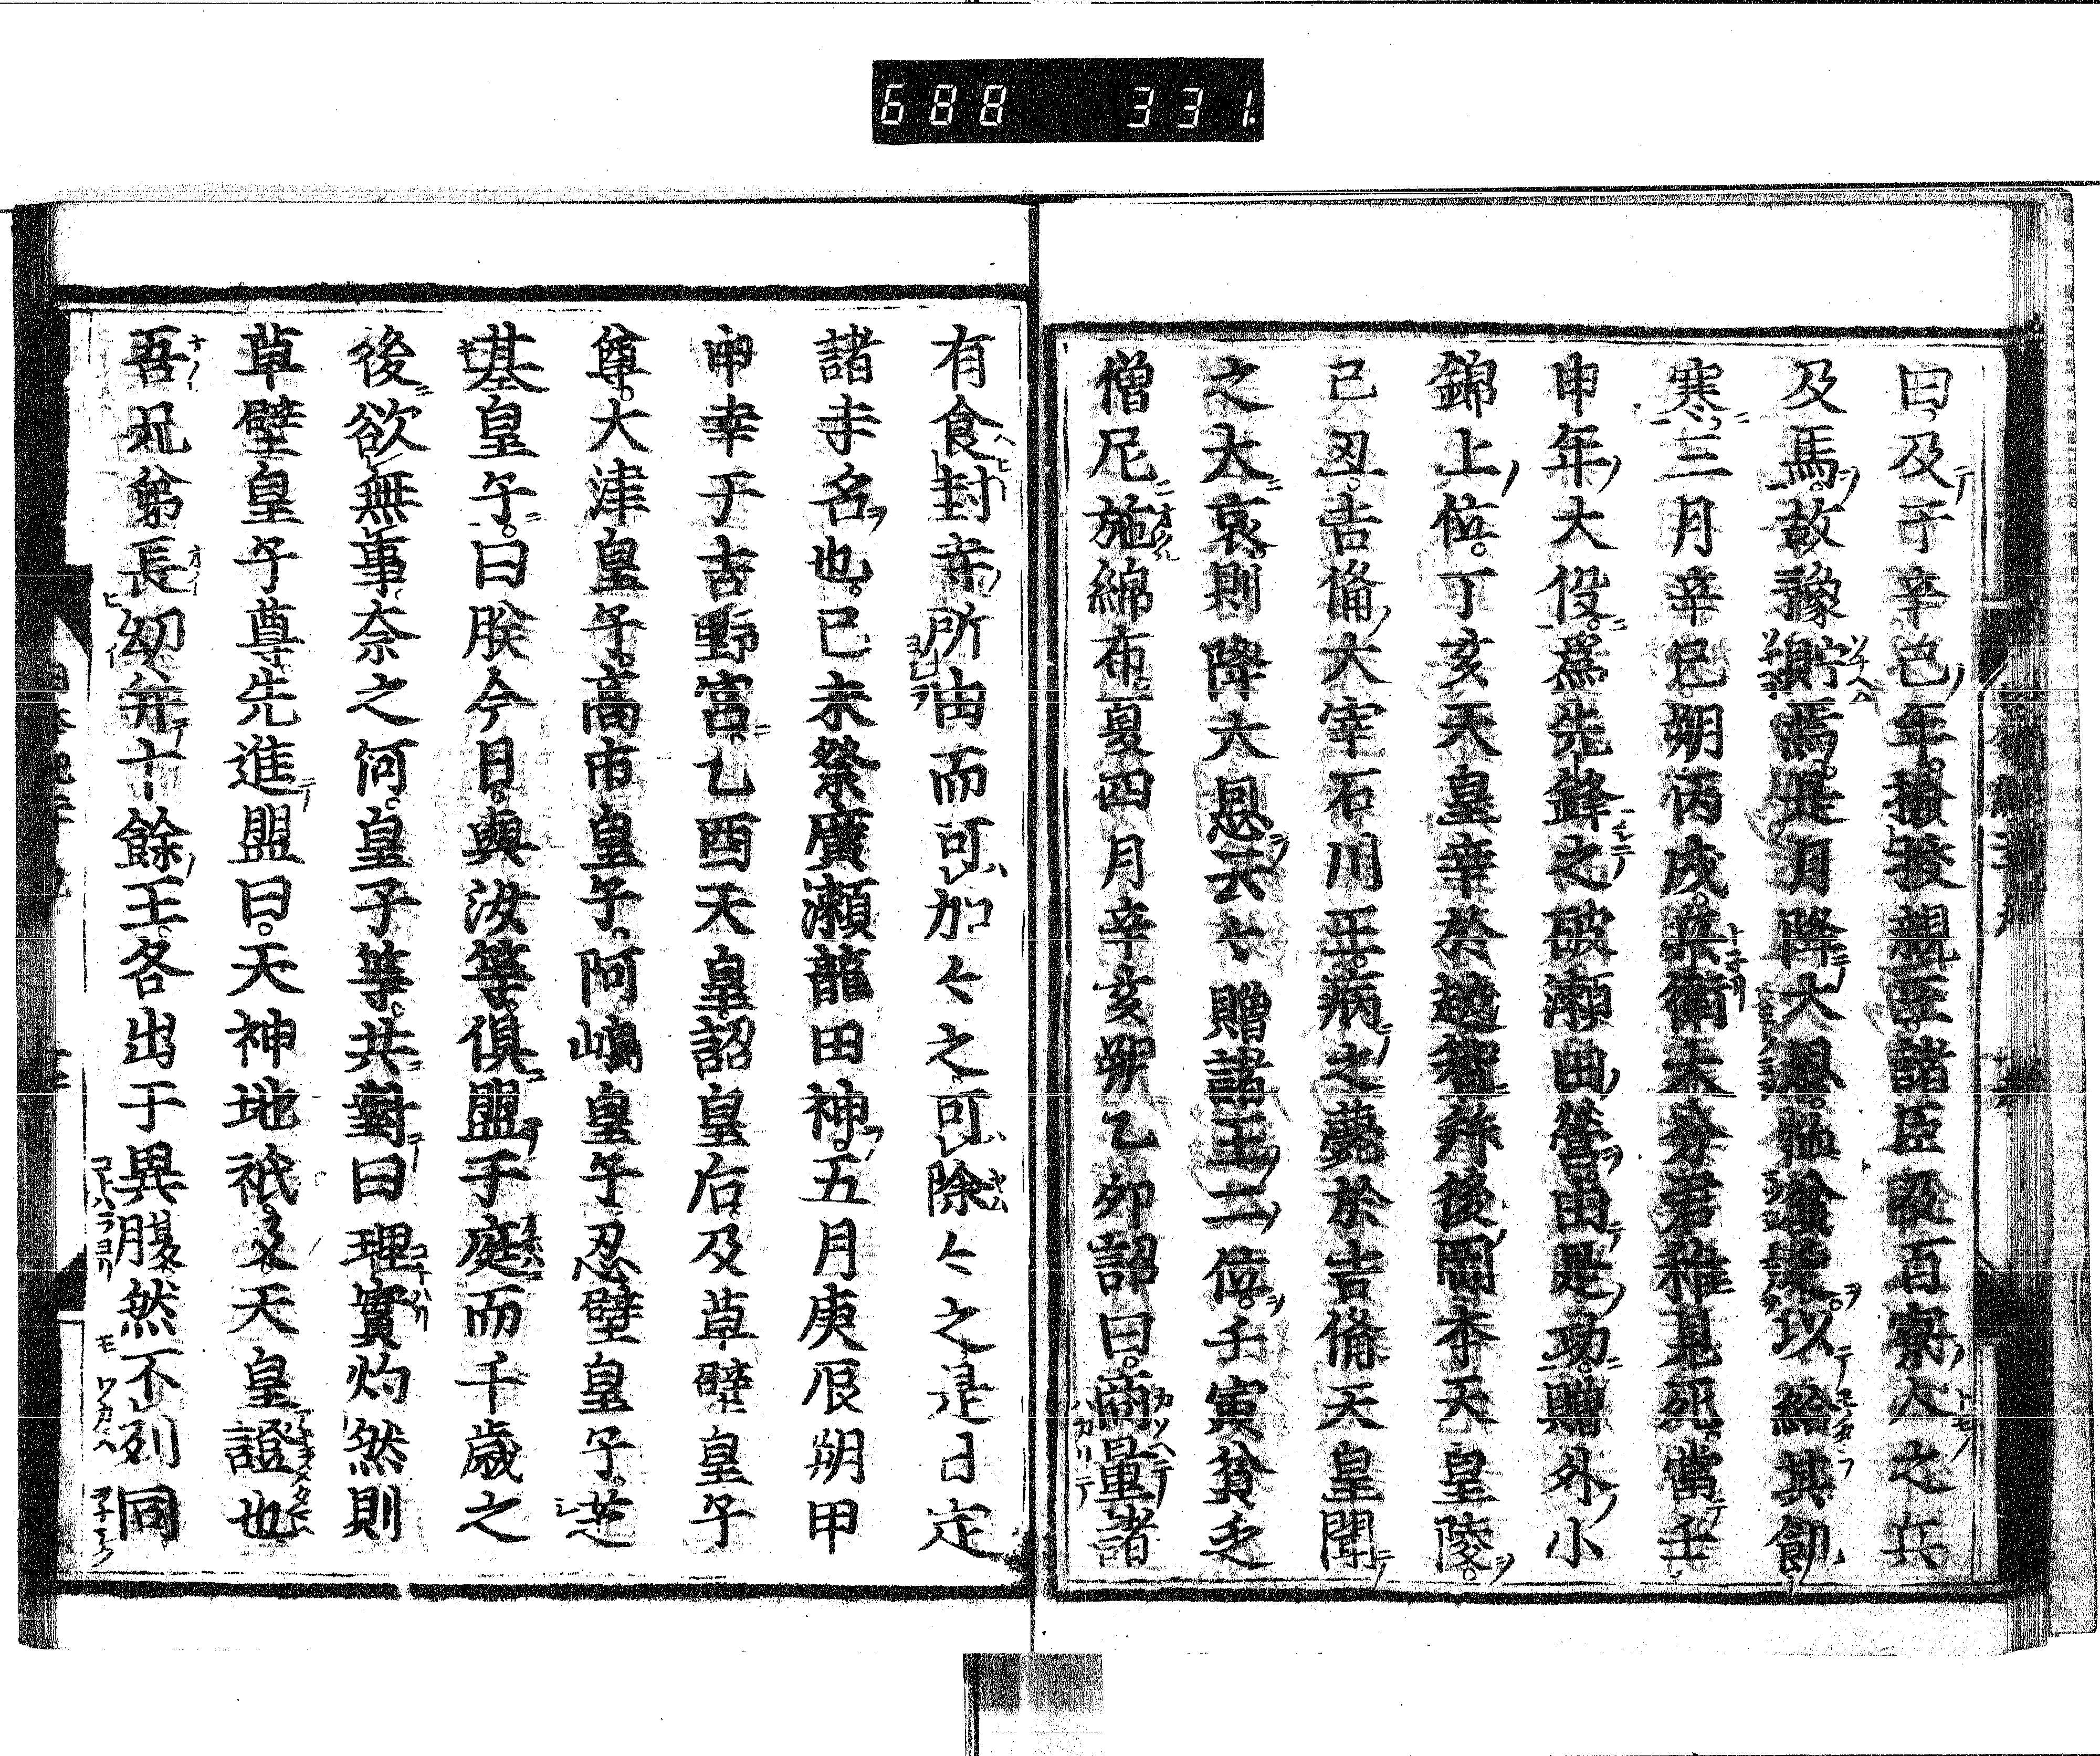 688 331
曰及于辛巳年撿挍親王諸臣及百寮人之兵
及馬故豫貯焉是月降大恩恤貧乏以給其飢
寒三月辛巳朔丙戌兵衛大分君稚見死當壬
申年大役爲先鋒之破瀬田營由是功贈外小
錦上位丁亥天皇幸於越智拜後岡本天皇陵
己丑吉備大宰石川王病之薨於吉備天皇聞
之大哀則降大恩云々贈諸王二位壬寅貧乏
僧尼施綿布夏四月辛亥朔乙卯詔曰商量諸
有食封寺所由而可加々之可除々之是日定
諸寺名也己未祭廣瀬龍田神五月庚辰朔甲
申幸于吉野宮乙酉天皇詔皇后及草壁皇子
尊大津皇子高市皇子河嶋皇子忍壁皇子芝
基皇子曰朕今日與汝等倶盟于庭而千歳之
後欲無事奈之何皇子等共對曰理實灼然則
草壁皇子尊先進盟曰天神地祇及天皇證也
吾兄弟長幼并十餘王各出于異腹然不別同